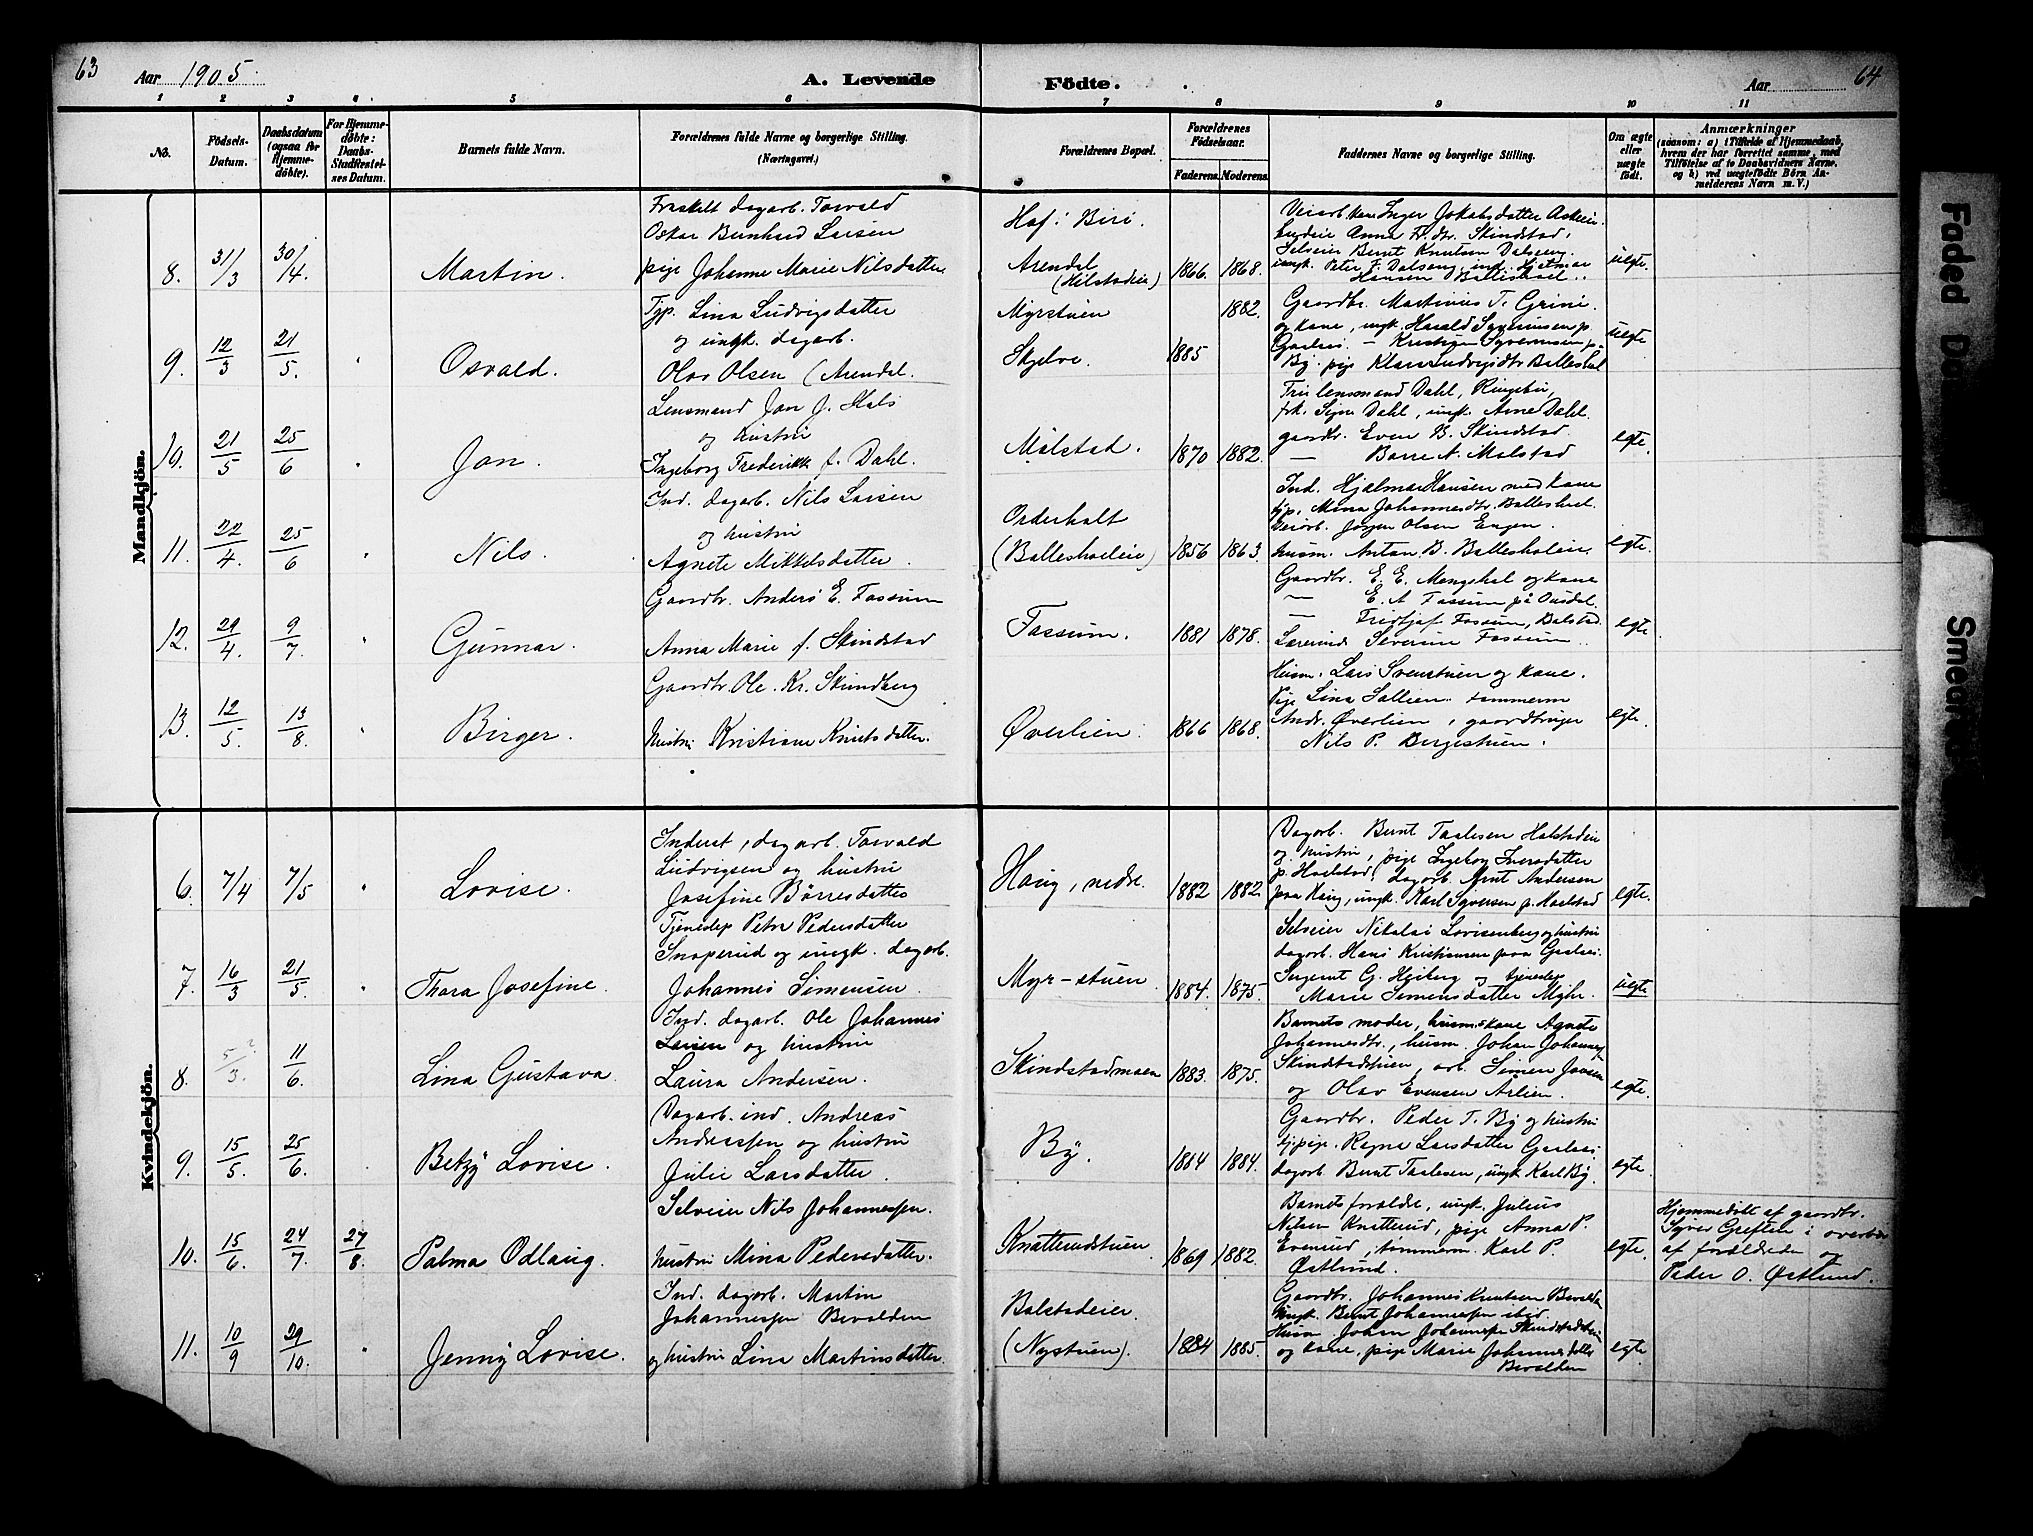 63
Aar 1905.
A. Levende
Födte.
Aar
64
1 2 3 4 5 6 7 8 9 10 11
No.
Födsels-
Datum.
Daabsdatum
(ogsaa for
Hjemme-
döbte).
For Hjemme-
döbte:
Daabs-
Stadfæstel-
ses Datum.
Barnets fulde Navn.
Forældrenes fulde Navne og borgerlige Stilling.
(Næringsvei.)
Forældrenes Bopæl.
Forældrenes
Födselsaar.
Faderens. Moderens.
Faddernes Navne og borgerlige Stilling.
Om ægte
eller
uægte
födt.
Anmærkninger
(saasom: a) i Tilfælde af Hjemmedaab,
hvem der har forrettet samme, med
Tilföielse af to Daabsvidners Navne,
og b) ved uægtefödte Börn An-
melderens Navn m. V.)
Mandkjön.
8. 31/3 30/4. Martin.
Fraskilt dagarb. Torvald
Oskar Bernhard Larsen
pige Johanne Marie Nilsdatter
Hof i Biri.
Arendal
(Hilstadeie)
1866. 1868.
Veiarb. kone Inger Jokabsdatter
Anna Skindstad,
Selveier Bernt Knutsen Dalseng,
ungk. Peter F. Dalseng, ind. Hjelmar
Hansen Balleshoel.
uegte.
9. 12/3 21/5. Osvald.
Tjp. Lina Ludvigsdatter
og ungk. dagarb.
Olav Olsen (Arendal.
Myrstuen
Skjelve.
1882.
1885
Gaardbr. Martinius T. Grini
og kone, ungk. Harald Syvernsen p.
Kristian Syvernsen p.
By. pige Klara Ludvigsdtr Balleshol
uegte
10. 21/5 25/6 Jon.
Lensmand Jon J. Hals
og hustru
Ingeborg Fredrikke f. Dahl.
Målstad. 1870 1882.
Fru lensmand Dahl, Ringebu,
frk. Signe Dahl, ungk. Arne Dahl.
gaardbr. Even B. Skindstad
— Borre N. Malstad
egte.
11. 22/4. 25/6 Nils.
Ind. dagarb. Nils Larsen
og hustru
Agnete Mikkelsdatter.
Orderhalt
(Balleshoeleie) 1856 1863.
Ind. Hjalmar Hansen med kone
tjp. Mina Johannesdtr. Balleshoel.
Veiarb. Jørgen Olsen Engen.
husm. Anton B. Balleshøleie.
egte.
12. 29/4. 9/7. Gunnar.
Gaardbr. Anders E. Fossum
Anna Marie f. Skindstad
Fossum. 1881 1878.
Gaardbr. E. E. Mengshol og kone
— E. A Fossum på Onsdal.
— Fridtjof Fossum, Balstad.
Lærerinde Severine Fossum.
egte
13. 12/5. 13/8. Birger.
Gaardbr. Ole. Kr. Skundberg
hustru Kristiane Knutsdatter.
Øverlien. 1866 1868.
Husm. Lars Svenstuen og kone.
Pige Lina Sollien. tommerm
Andr. Øverlien, gaardbruger
Nils P. Bergestuen.
egte.
Kvindekjön.
6. 7/4 7/5 Lovise.
Inderst, dagarb. Torvald
Ludvigsen og hustru
Josefine Børresdatter
Haug, nedre. 1882 1882.
Dagarb. Bernt Taalesen Holstadeie
og hustru, pige Ingeborg Iversdatter
p. Hoelstad, dagarb. Arnt Andersen
paa Haug, ungk. Karl Syversen p. Maelstad
egte.
7. 16/3 21/5. Thora Josefine.
Tjenestep Petra Pedersdatter
Snoperud og ungk. dagarb.
Johannes Simensen.
Myr-stuen 1884. 1875.
Selveier Nikolai Lovisenberg og hustru
dagarb. Hans Kristiansen paa
Sergent G. Heiberg og tjenestep
Marie Simensdatter Myhr.
uegte
8. 5/3.? 11/6. Lina Gustava.
Ind. dagarb. Ole Johannes
Larsen og hustru
Laura Andersen.
Skindstadmoen 1883. 1875.
Barnets moder, husm.skone Agnete
Johannesdtr., husm. Johan Johannes.
Skindstadstuen, arb. Simen Jonsen
og Olav Evensen Aslien.
egte.
9. 15/5. 25/6. Betzy Lovise.
Dagarb. ind. Andreas
Andreassen og hustru
Julie Larsdatter.
By. 1884. 1884.
Gaardbr. Peder T. By og hustru
tj.pige. Ragna Larsdatter
dagarb Bernt Taalesen, ungk Karl By.
egte.
10. 15/6. 24/7. 27/8. Palma Odlaug.
Selveier Nils Johannessen.
hustru Mina Pedersdatter.
Knatterudstuen. 1869 1882.
Barnets forældre, ungk. Julius
Nilsen Knatterud, pige Anna P.
Evenrud, tømmerm. Karl P.
Østlund.
egte.
Hjemmedøbt af gaardbr.
Syver Greften i overvær
af forældrene og
Peder O. Østlund.
11. 10/9 29/10. Jenny Lovise.
Ind. dagarb. Martin
Johannessen Bevolden
og hustru Lina Martinsdatter
Bolstadeier
(Nystuen). 1884 1885.
Gaardbr. Johannes Knutsen Bevolden
Ungk. Bernt Johannessen ibid.
Husm Johan Johannessen Skindstadstuen
og kone, pige Marie Johannesdatter
Bevolden
egte.
Faded
Smeared